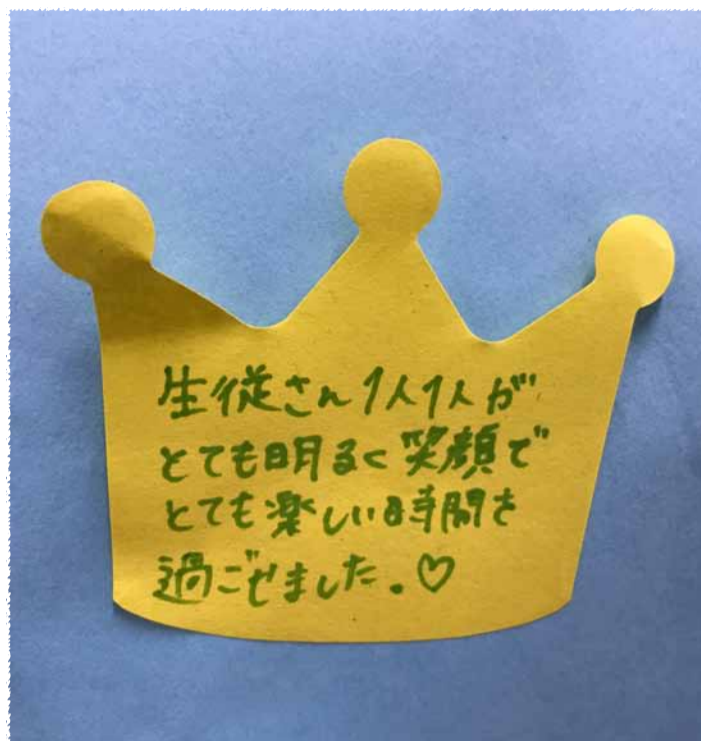 生従さん1人1人が
とても明るく笑顔で
とても楽しい時間を
過ごせました.♡